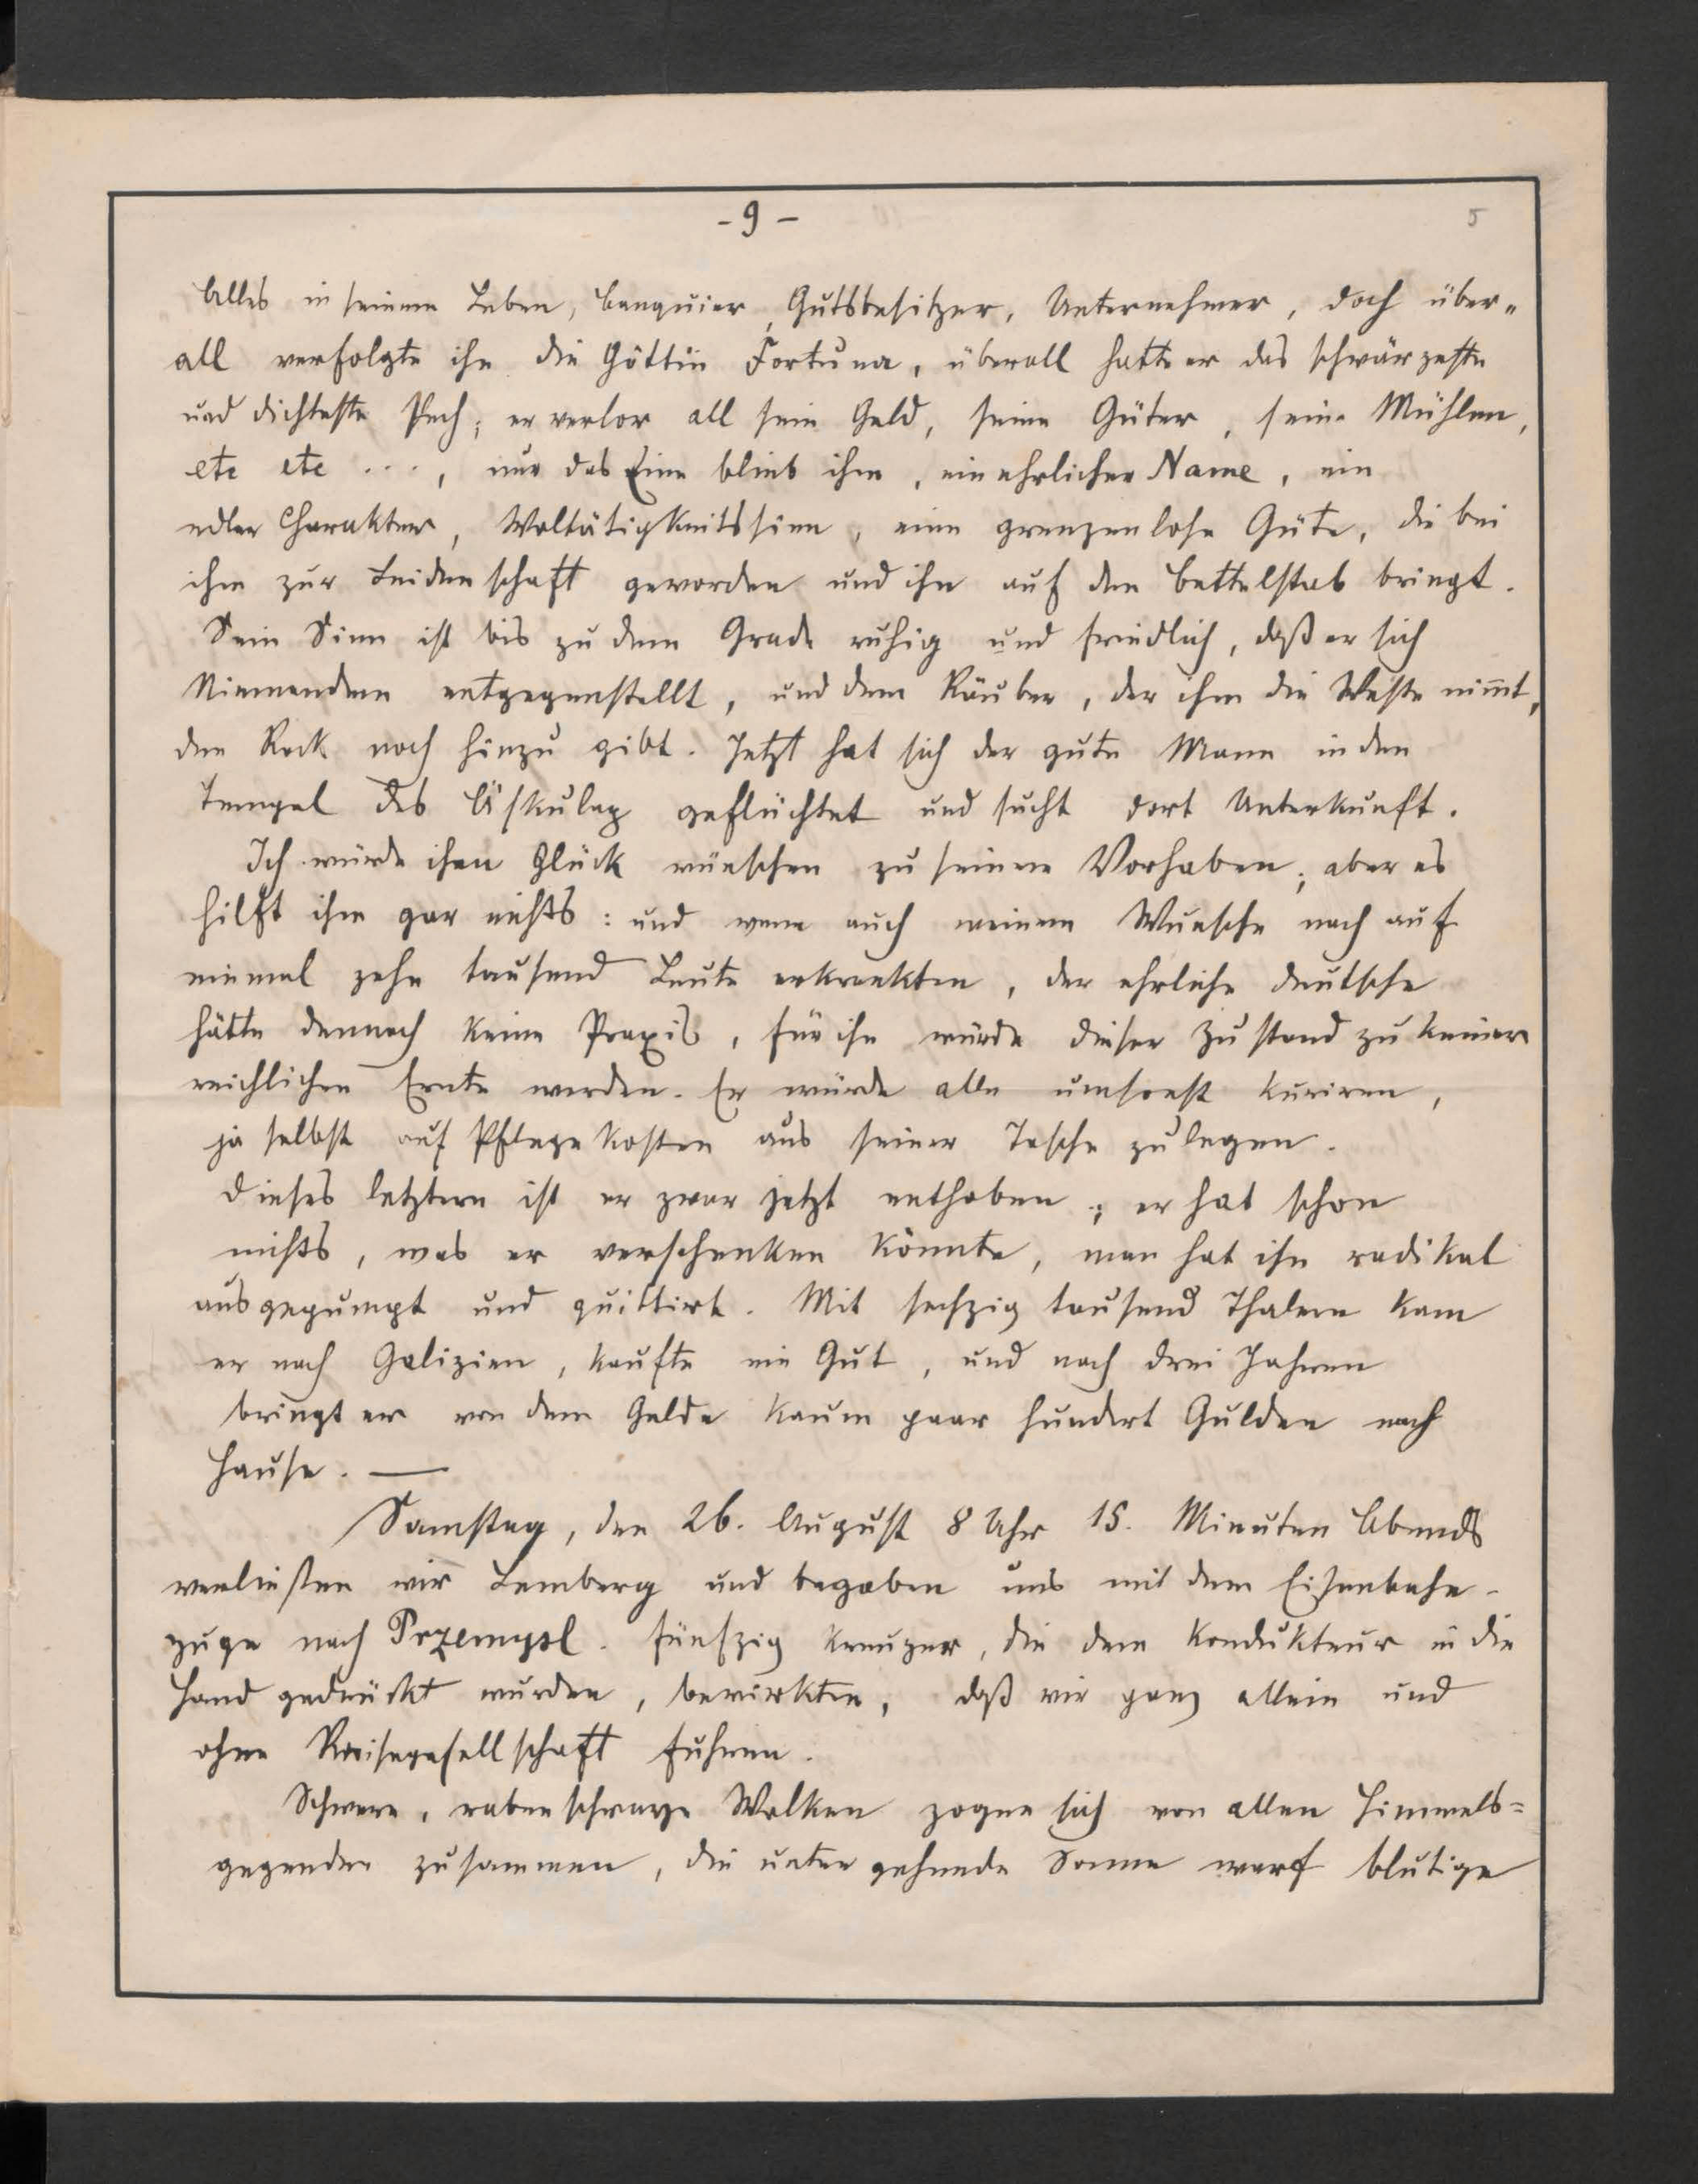 - 9 -
5
Alles in seinem Leben, Banquier, Gutsbesitzer, Unternehmer, doch über-
all verfolgte ihn die Göttin Fortuna, überall hatte er das schwärzeste
und dichteste Pech; er verlor all sein Geld, seine Güter, seine Mühlen,
etc etc ...., nur das Eine blieb ihm, ein ehrlicher Name, ein
edler Charakter, Woltätigkeitssinn, eine grenzenlose Güte, die bei
ihm zur Leidenschaft geworden und ihn auf den Bettelstab bringt.
Sein Sinn ist bis zu dem Grade ruhig und friedlich, daß er sich
Niemandem entgegenstellt, und dem Räuber, der ihm die Weste nim̄t,
den Rock noch hinzu gibt. Jetzt hat sich der gute Mann in den
Tempel des Äskulap geflüchtet und sucht dort Unterkunft.
Ich würde ihm Glück wünschen zu seinem Vorhaben; aber es
hilft ihm gar nichts: und wenn auch meinem Wunsche nach auf
einmal zehn tausend Leute erkrankten, der ehrliche Deutsche
hätte dennoch keine Praxis, für ihn würde dieser Zustand zu keiner
reichlichen Ernte werden. Er würde alle umsonst kuriren,
ja selbst auf Pflegekosten aus seiner Tasche zulegen.
Dieses letztern ist er zwar jetzt enthoben; er hat schon
nichts, was er verschenken könnte, man hat ihn radikal
ausgepumpt und quittirt. Mit sechzig tausend Thalern kam
er nach Galizien, kaufte ein Gut, und nach drei Jahren
bringt er von dem Gelde kaum paar hundert Gulden nach
Hause. —
Samstag, den 26. August 8 Uhr 15. Minuten Abends
verließen wir Lemberg und begaben uns mit dem Eisenbahn-
zuge nach Przemysl. Fünfzig Kreuzer, die dem Kondukteur in die
Hand gedrückt wurden, bewirkten, daß wir ganz allein und
ohne Reisegesellschaft fuhren.
Schwere, rabenschwarze Wolken zogen sich von allen Himmels=
gegenden zusammen, die untergehende Sonne warf blutige